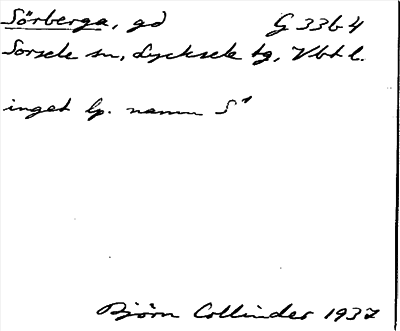 Sörberga, gd G 33 b 4
Sorsele sn, Lycksele tg, Vbt l.
inget lp. namn S¹
Björn Collinder 1937